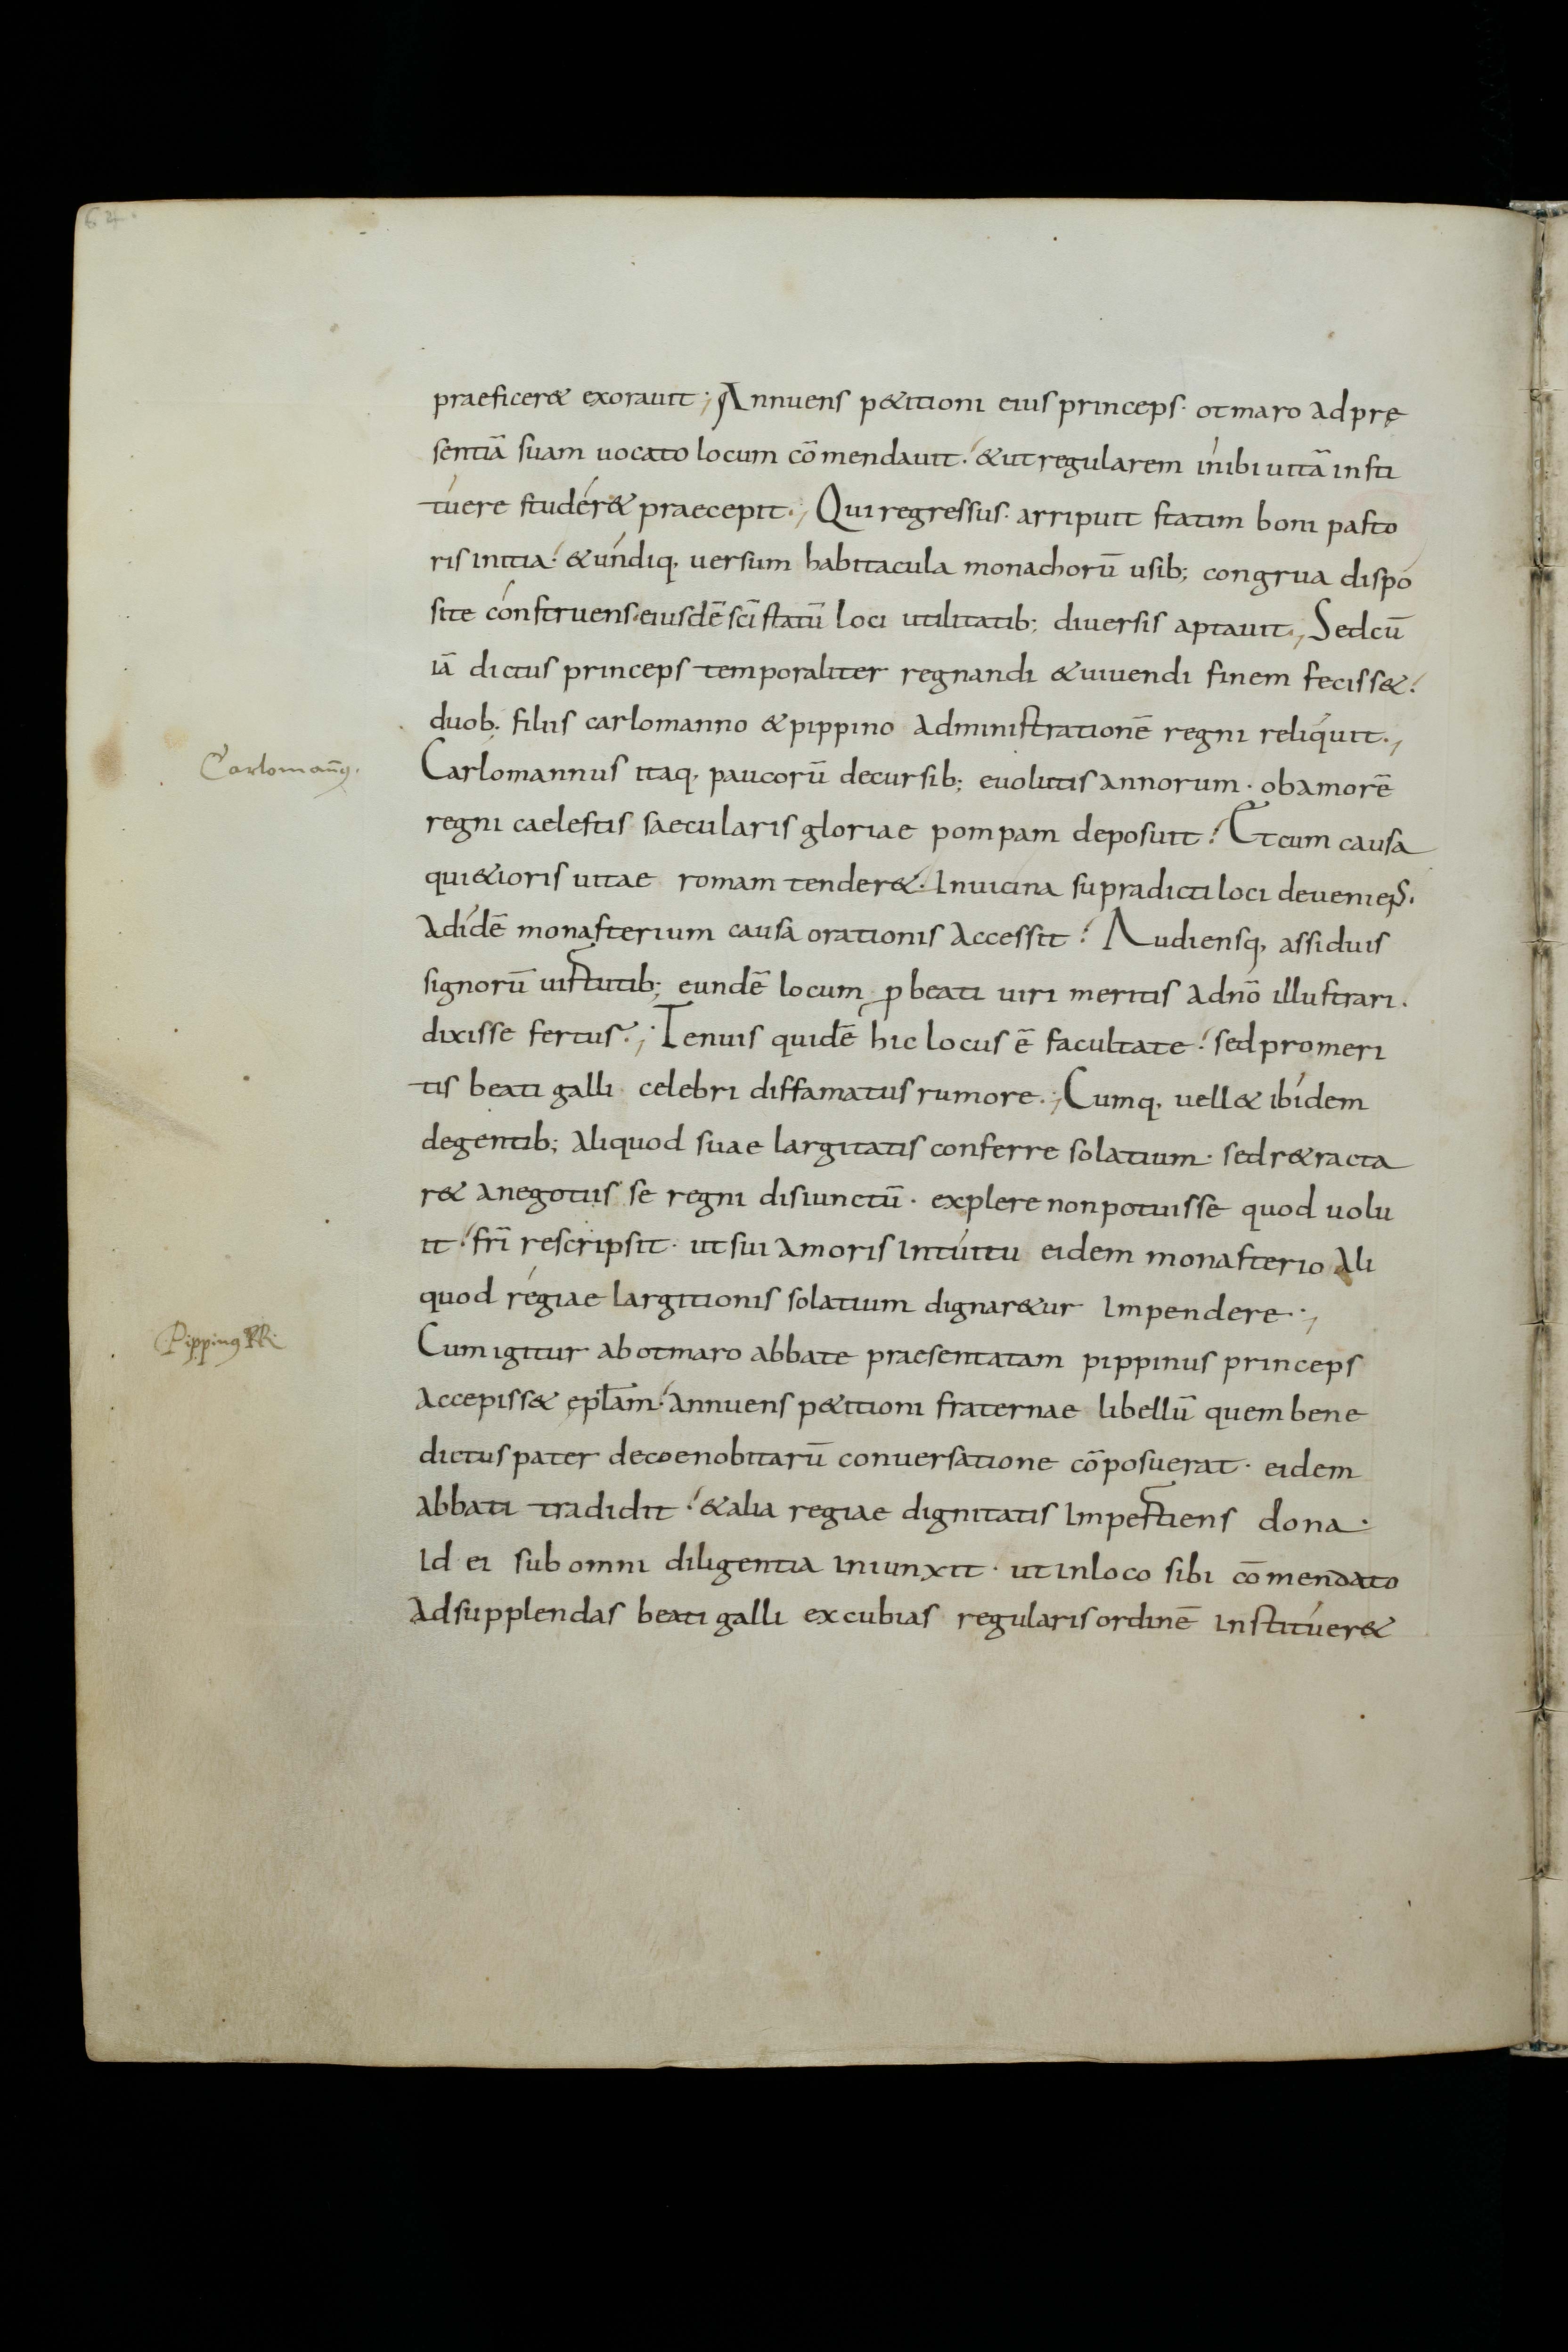 64.
praeficer& exorauit; Annuens p&itioni eius princeps· otmaro adprę
sentiā suam uocato locum cōmendauit· &utregularem inibi uitā insti
tuere studér& praecepit·, Qui regressus· arripuit statim boni pasto
ris initia· &undiq, uersum habitacula monachorū usib; congrua dispo
site construens· eiusdē sc̄i statū loci utilitatib; diuersis aptauit·, Sedcū
iā dictus princeps temporaliter regnandi &uiuendi finem feciss&·
duob; filiis carlomanno &pippino administrationē regni reliquit·,
Carlomañ9.
Carlomannus itaq, paucorū decursib; euolutis annorum· obamorē
regni caelestis saecularis gloriae pompam deposuit· Et cum causa
qui&ioris uitae romam tender&· Inuicina supradicti loci deueniens·
adidē monasterium causa orationis accessit· Audiensq, assiduis
signorū uirtutib; eundē locum ꝑ beati uiri meritis adn̄o illustrari·
dixisse fertur·, Tenuis quidē hic locus ē facultate· sed promeri
tis beati galli celebri diffamatus rumore·, Cumq, uell& ibidem
degentib; aliquod suae largitatis conferre solatium· sed r&racta
r& anegotiis se regni disiunctū· explere nonpotuisse quod uolu
it· fr̄i rescripsit· ut sui amoris intuitu eidem monasterio ali
quod regiae largitionis solatium dignar&ur impendere·,
Pippin9 RR.
Cum igitur ab otmaro abbate praesentatam pippinus princeps
accepiss& epl̄am· annuens p&itioni fraternae libellū quem bene
dictus pater decoenobitarū conuersatione cōposuerat· eidem
abbati tradidit· &alia regiae dignitatis impertiens dona·
Id ei sub omni diligentia iniunxit· ut inloco sibi cōmendato
adsupplendas beati galli excubias regularis ordinē instituer&